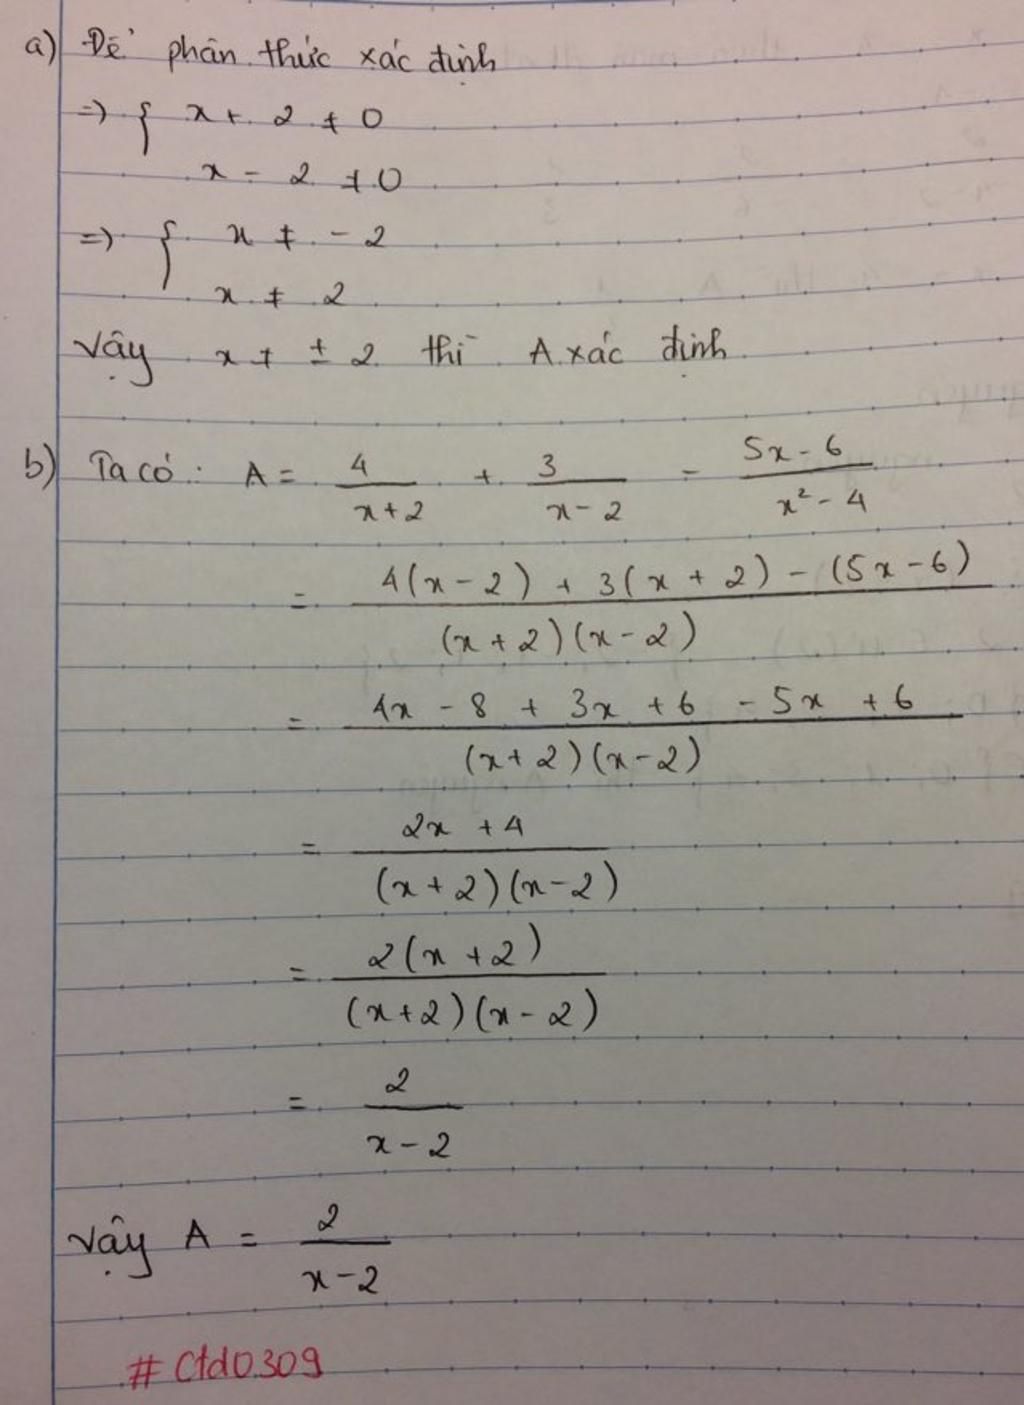 a) Để phân thức xác định
=> { x + 2 ≠ 0
x - 2 ≠ 0
=> { x ≠ - 2
x ≠ 2
Vậy x ≠ ± 2 thì A xác định
b) Ta có: A = 4/(x+2) + 3/(x-2) - (5x-6)/(x² - 4)
= (4(x-2) + 3(x+2) - (5x-6))/((x+2)(x-2))
= (4x - 8 + 3x + 6 - 5x + 6)/((x+2)(x-2))
= (2x + 4)/((x+2)(x-2))
= 2(x+2)/((x+2)(x-2))
= 2/(x-2)
Vậy A = 2/(x-2)
# Ctd0309